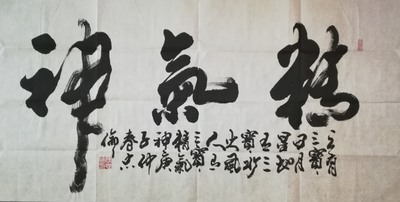 精氣神
天有
三寶
日月
星地
有三
寶水
火風
人有
三寶
精氣
神庚
子仲
春
倫